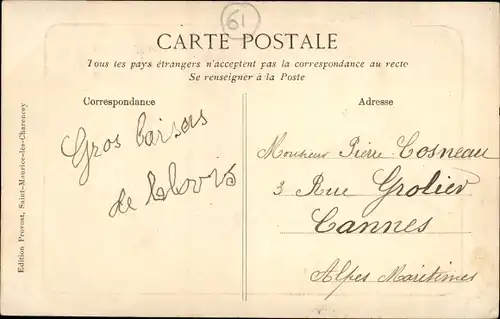 61
CARTE POSTALE
Tous les pays étrangers n'acceptent pas la correspondance au recto
Se renseigner à la Poste
Correspondance
Adresse
Gros baisers
de Clovis
Monsieur Pierre Cosneau
3 Rue Grolier
Cannes
Alpes Maritimes
Edition Provost, Saint-Maurice-lès-Charencey